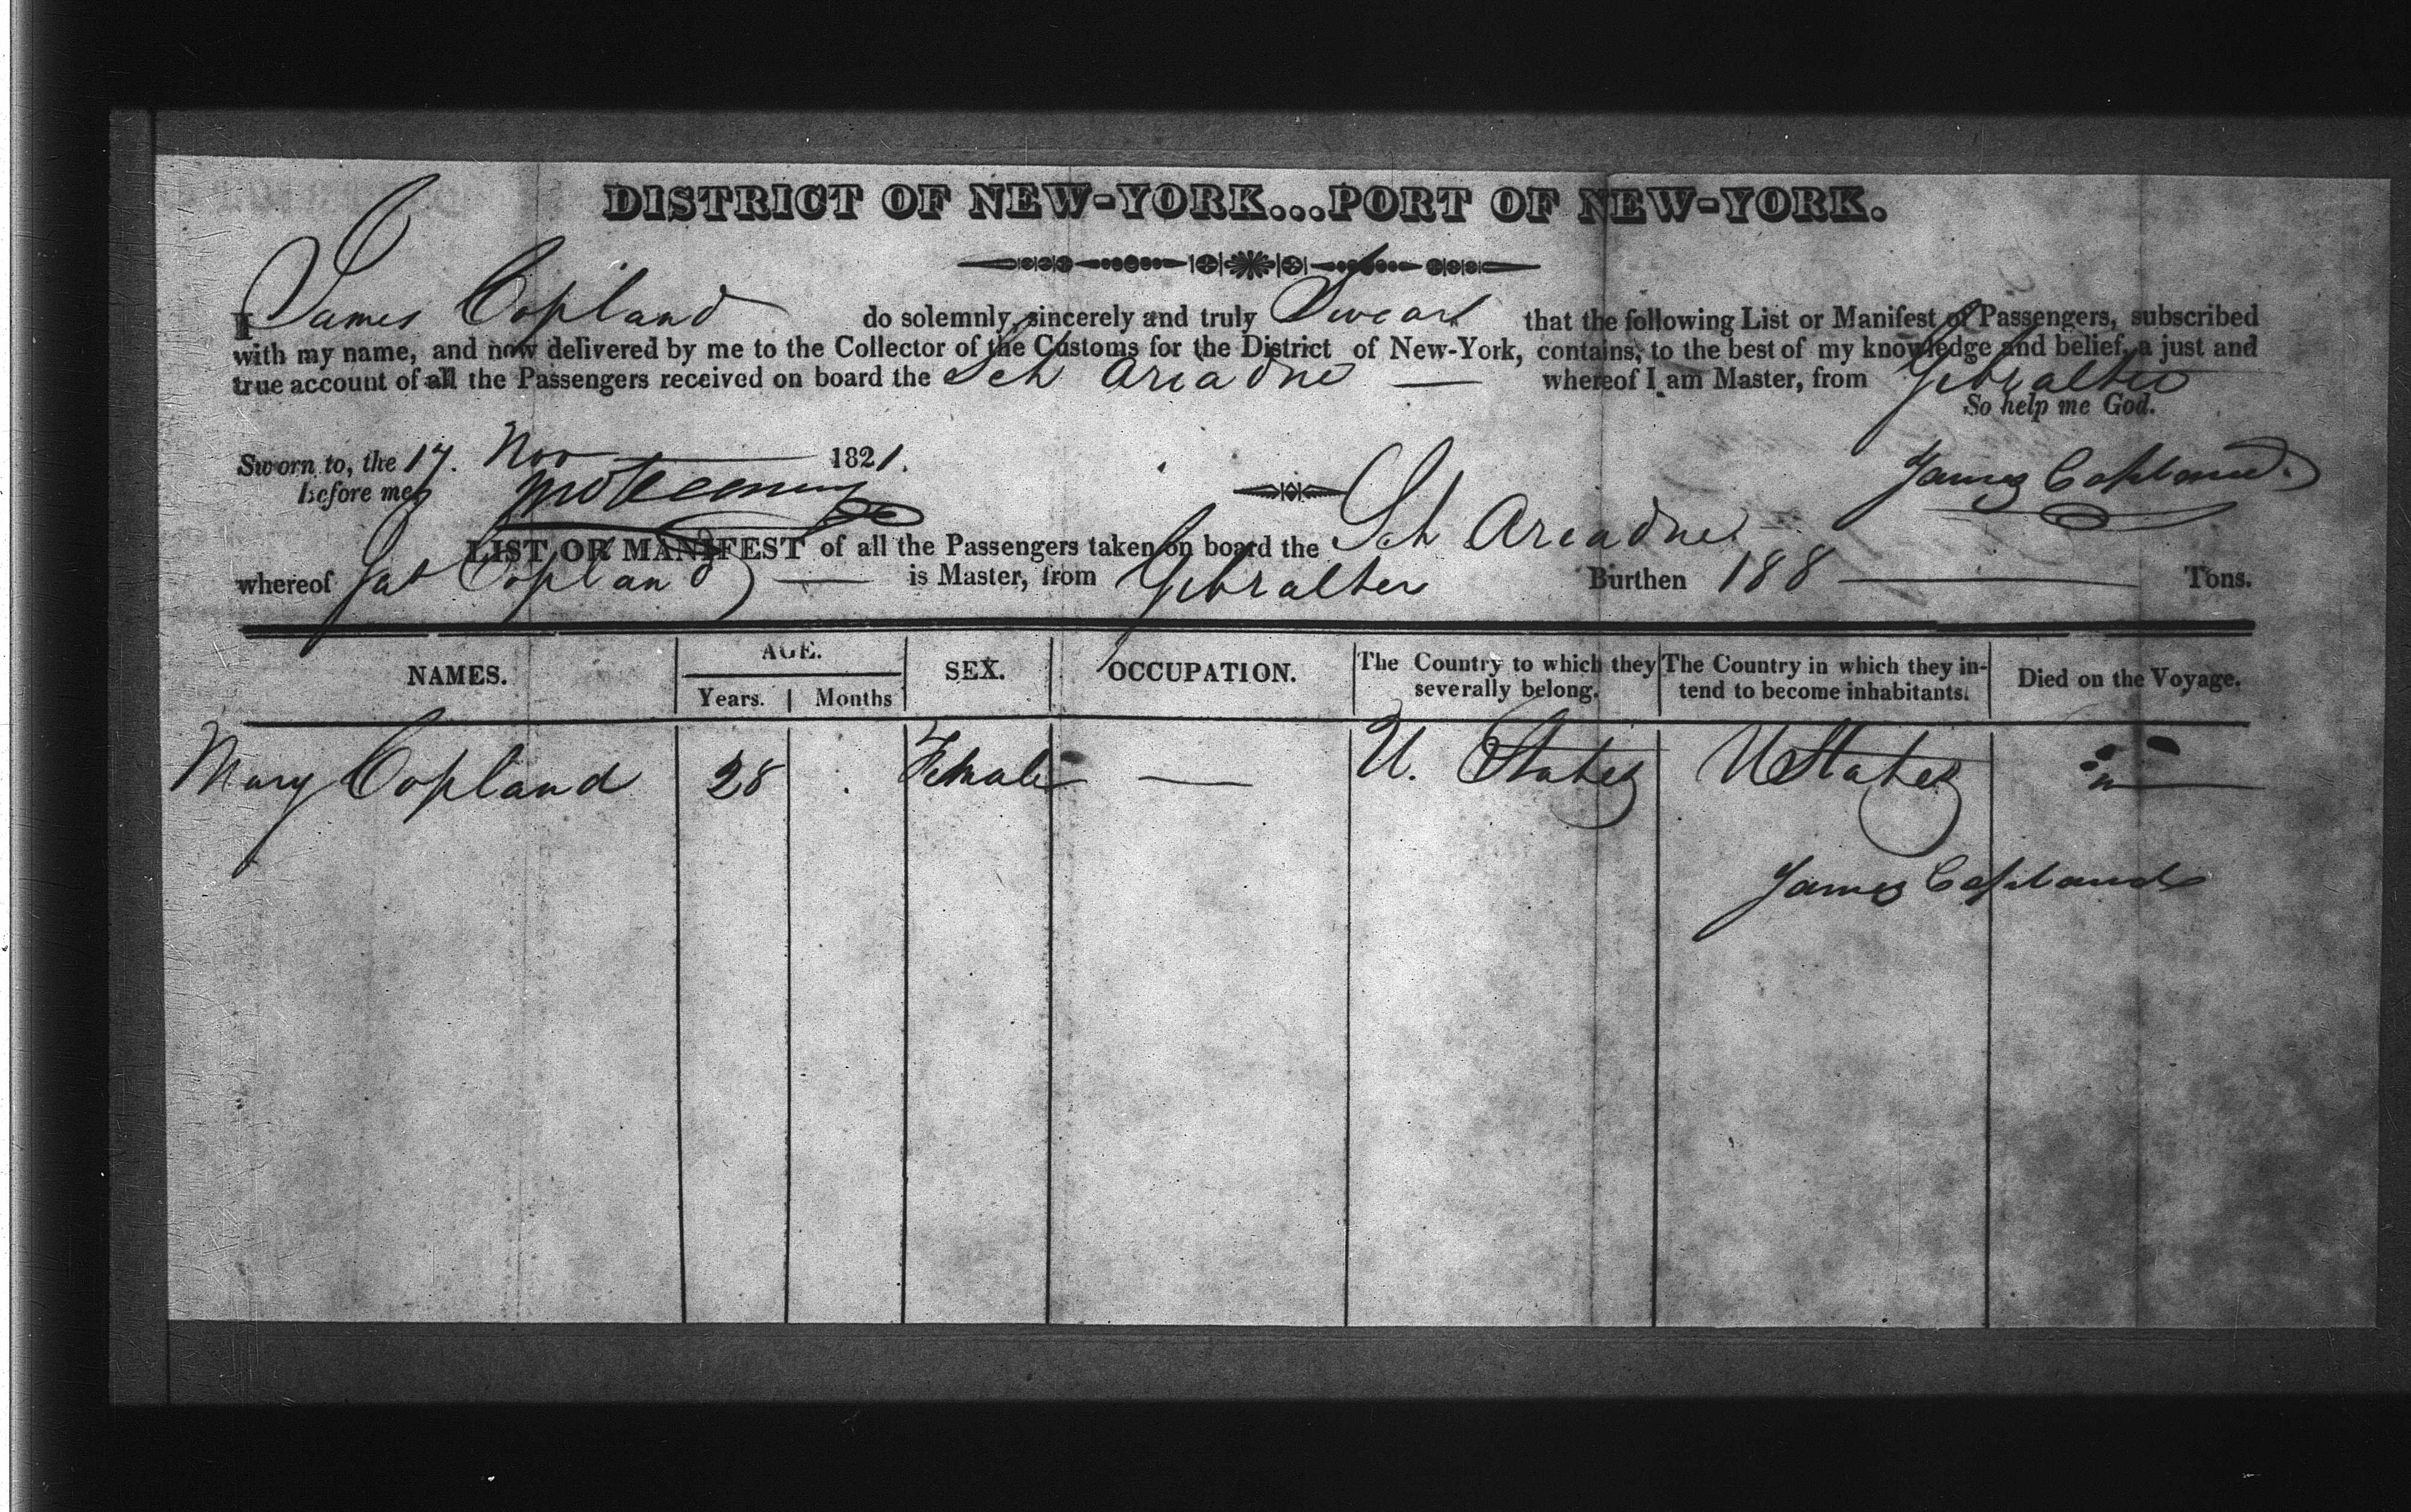 DISTRICT OF NEW-YORK...PORT OF NEW-YORK.
I James Copland do solemnly, sincerely and truly Swear that the following List or Manifest of Passengers, subscribed
with my name, and now delivered by me to the Collector of the Customs for the District of New-York, contains, to the best of my knowledge and belief, a just and
true account of all the Passengers received on board the Sch Ariadne — whereof I am Master, from Gibralter
So help me God.
Sworn to, the 17. Nov 1821.
before me,
James Copland
LIST OR MANIFEST of all the Passengers taken on board the Sch Ariadne
whereof Jas Copland — is Master, from Gibralter Burthen 188 — Tons.
NAMES. AGE. SEX. OCCUPATION. The Country to which they severally belong. The Country in which they intend to become inhabitants. Died on the Voyage.
Years. Months
Mary Copland 28 Female — U. States U States
James Copland